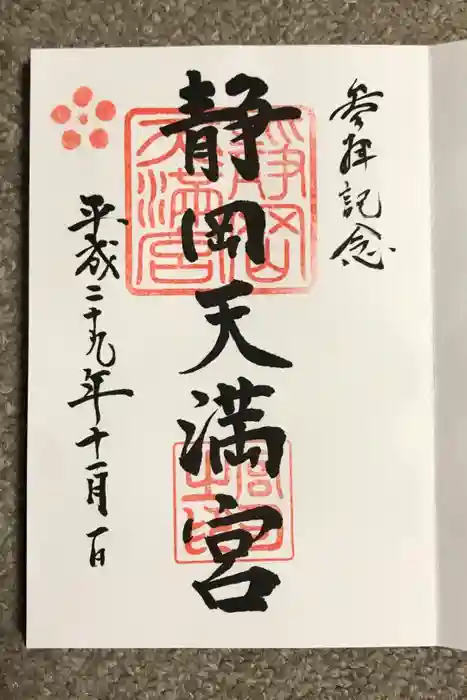 参拝記念
静岡天満宮
静岡天満宮
宮司之印
平成二十九年十一月一日